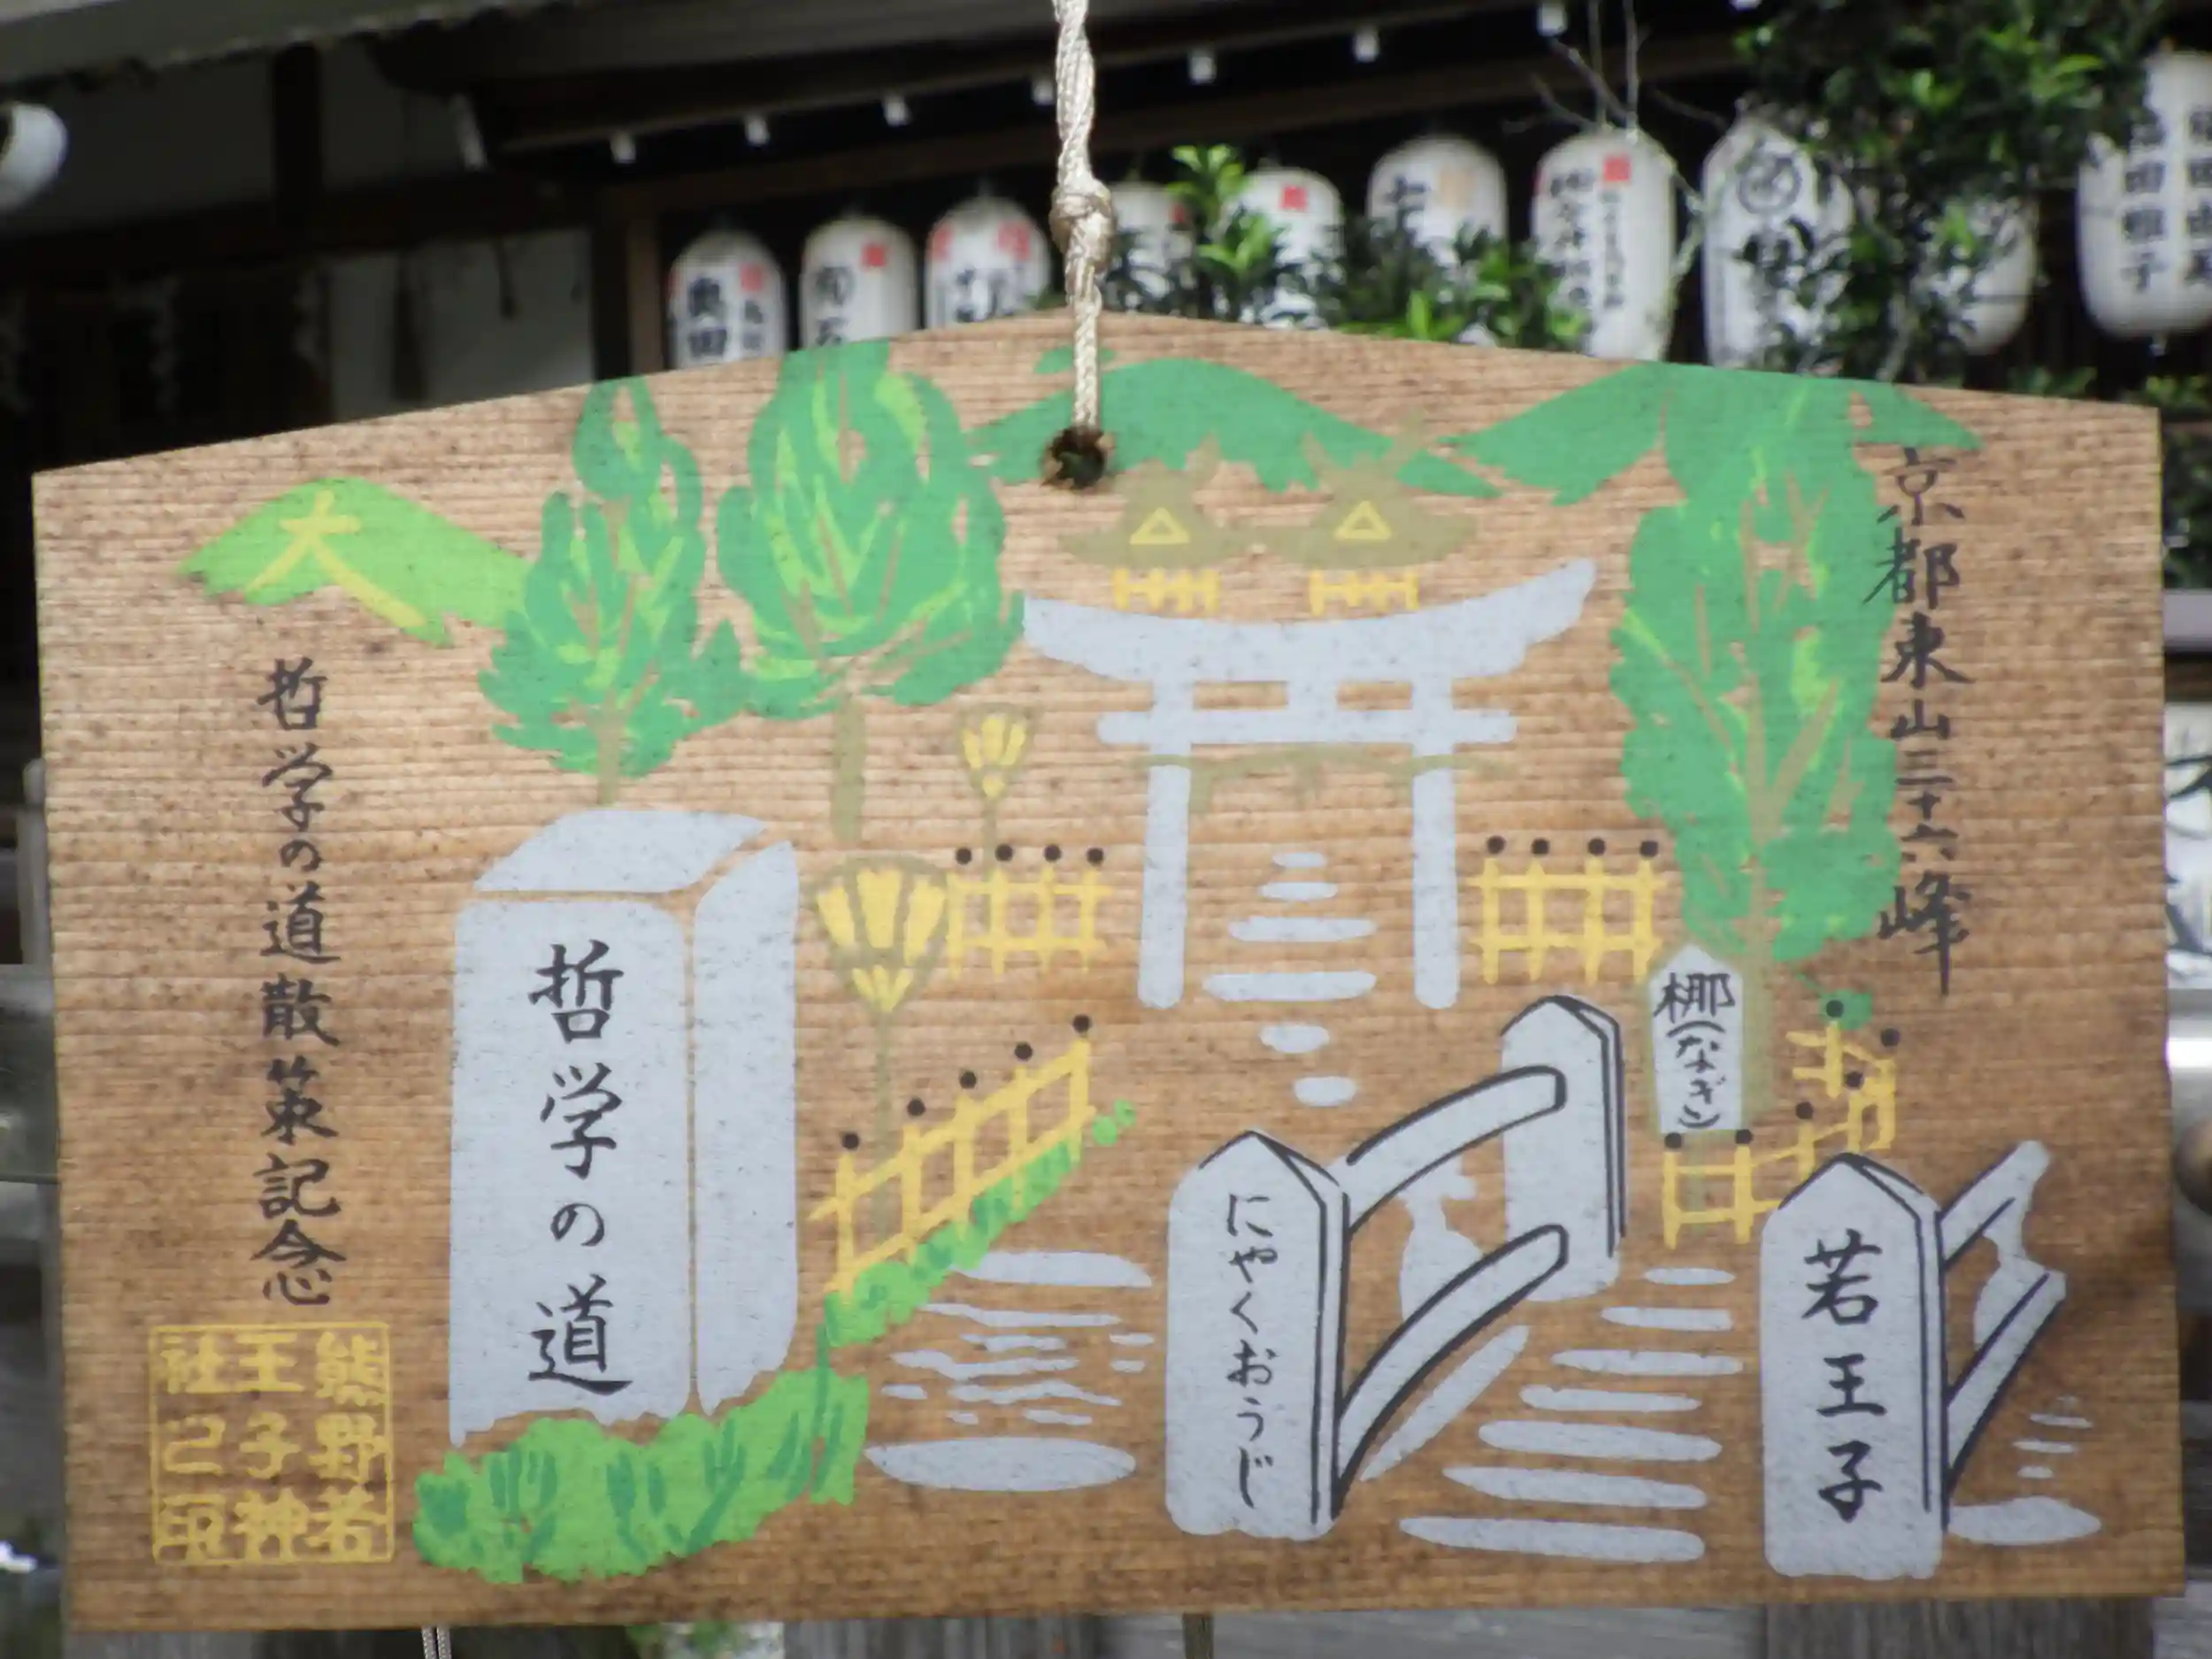 京都東山三十六峰
大
哲学の道散策記念
哲学の道
梛(なぎ)
にゃくおうじ
若王子
熊野若
王子神
社之印
奥田